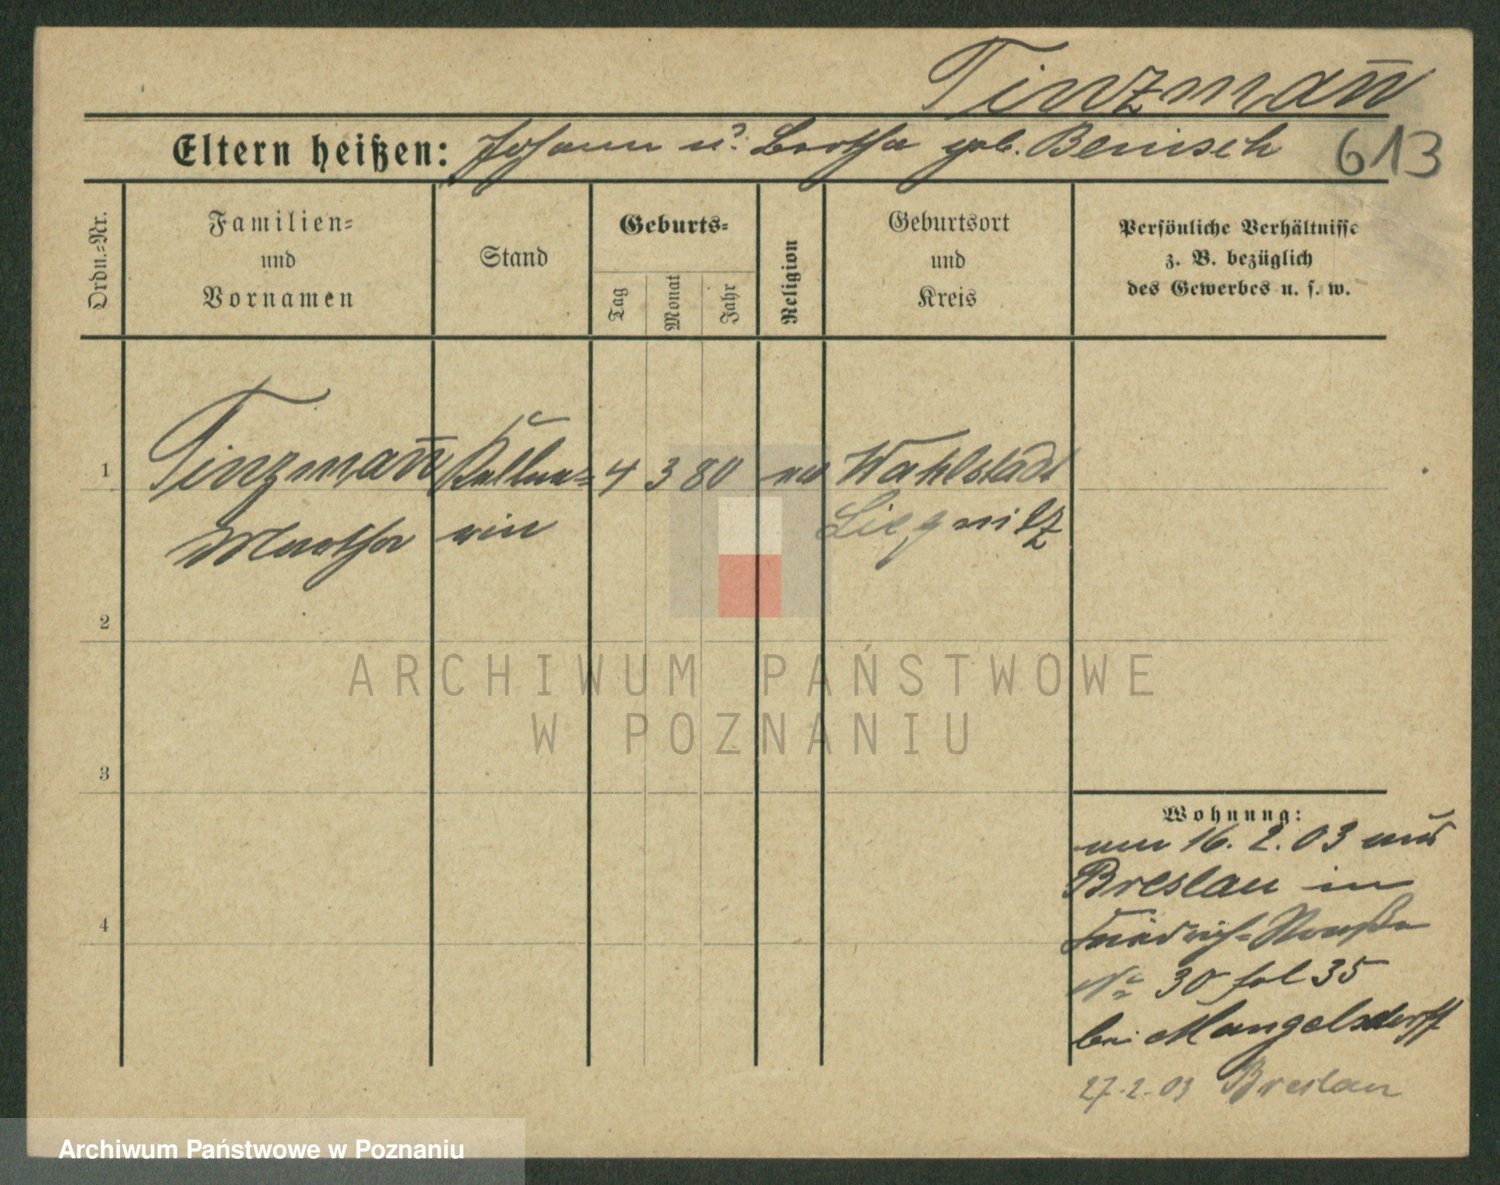 Tinzmann̄
Eltern heißen: Johann u. Bertha geb. Benisch 613
Ordn.=Nr.
Familien=
und
Vornamen
Stand
Geburts=
Tag
Monat
Jahr
Religion
Geburtsort
und
Kreis
Persönliche Verhältnisse
z. B. bezüglich
des Gewerbes u. s. w.
1 Tinzman̄ Kellne= 4 3 80 Wahlstadt
Martha rin Liegnitz
2
3
4
Wohnung:
am 16. 2. 03 aus
Breslau in
Friedrich=Straße
No 30 fol 35
bei Mangelsdorff
27.2.03 Breslau
ARCHIWUM PAŃSTWOWE
W POZNANIU
Archiwum Państwowe w Poznaniu